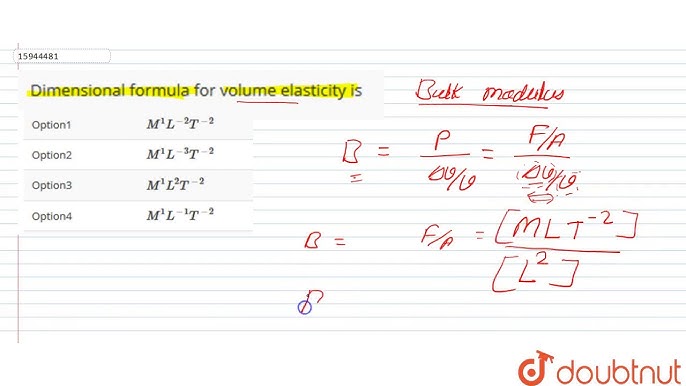 15944481
Dimensional formula for volume elasticity is
Option1 M¹L⁻²T⁻²
Option2 M¹L⁻³T⁻²
Option3 M¹L²T⁻²
Option4 M¹L⁻¹T⁻²
Bulk modulus
B = P / Δv/v = F/A / Δv/v
B = F/A = [MLT⁻²] / [L²]
doubtnut